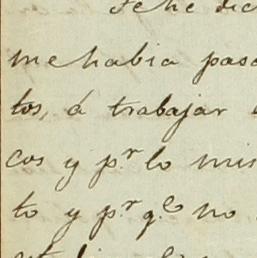 Te he dic
me habia pasa
tos, á trabajar
cos y p.r lo mis
to y p.r q.e no